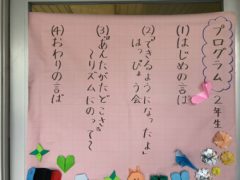 プログラム 2年生
(1)はじめの言ば
(2)「できるようになったよ」
はっぴょう会
(3)「あんたがたどこさ」
〜リズムにのって〜
(4)おわりの言ば